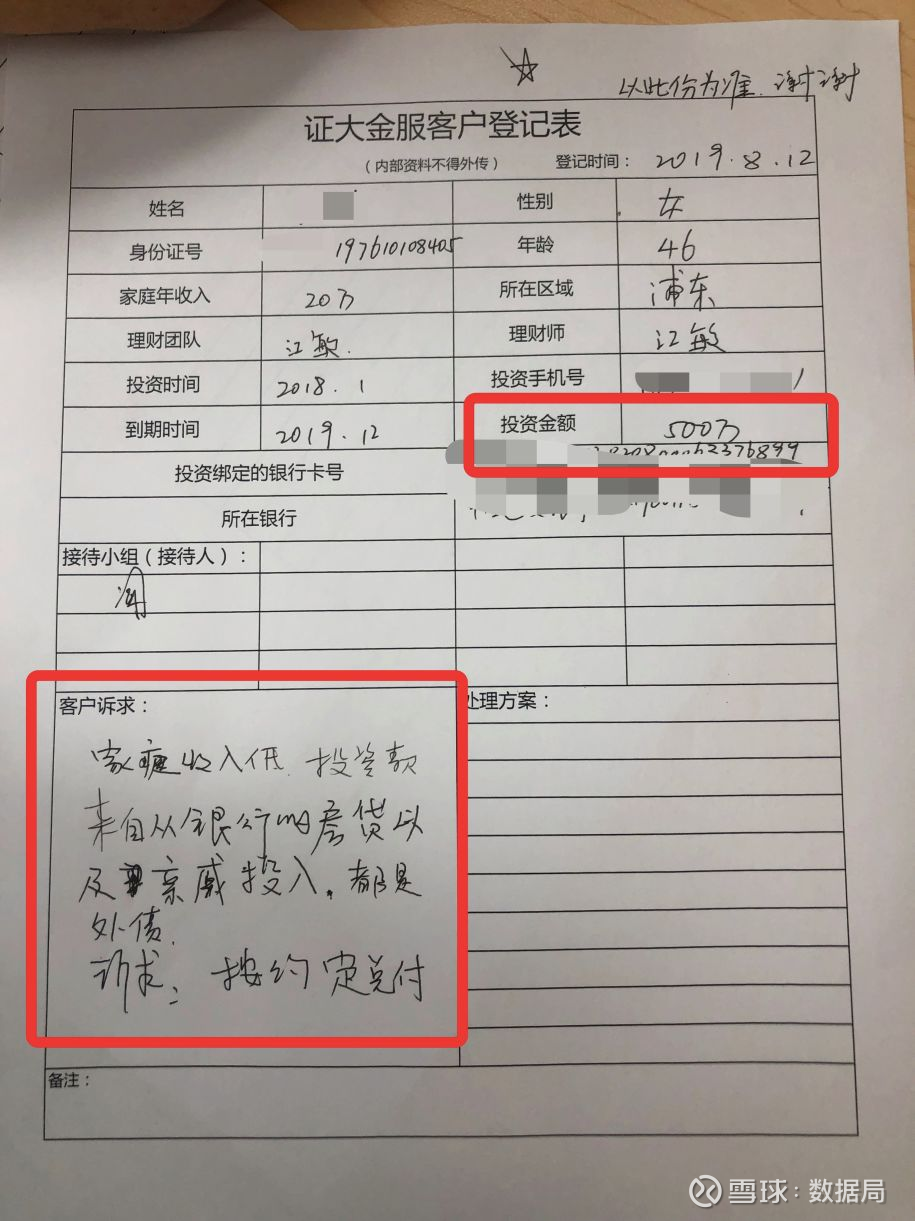 以此份为准.谢谢
证大金服客户登记表
（内部资料不得外传） 登记时间： 2019.8.12
姓名 性别 女
身份证号 197610108405 年龄 46
家庭年收入 20万 所在区域 浦东
理财团队 江敏. 理财师 江敏
投资时间 2018.1 投资手机号
到期时间 2019.12 投资金额 500万
投资绑定的银行卡号
所在银行
接待小组（接待人）：
客户诉求： 处理方案：
家庭收入低.投资款
来自从银行的房贷以
及亲戚投入.都是
外债.
诉求：按约定兑付
备注：
雪球：数据局